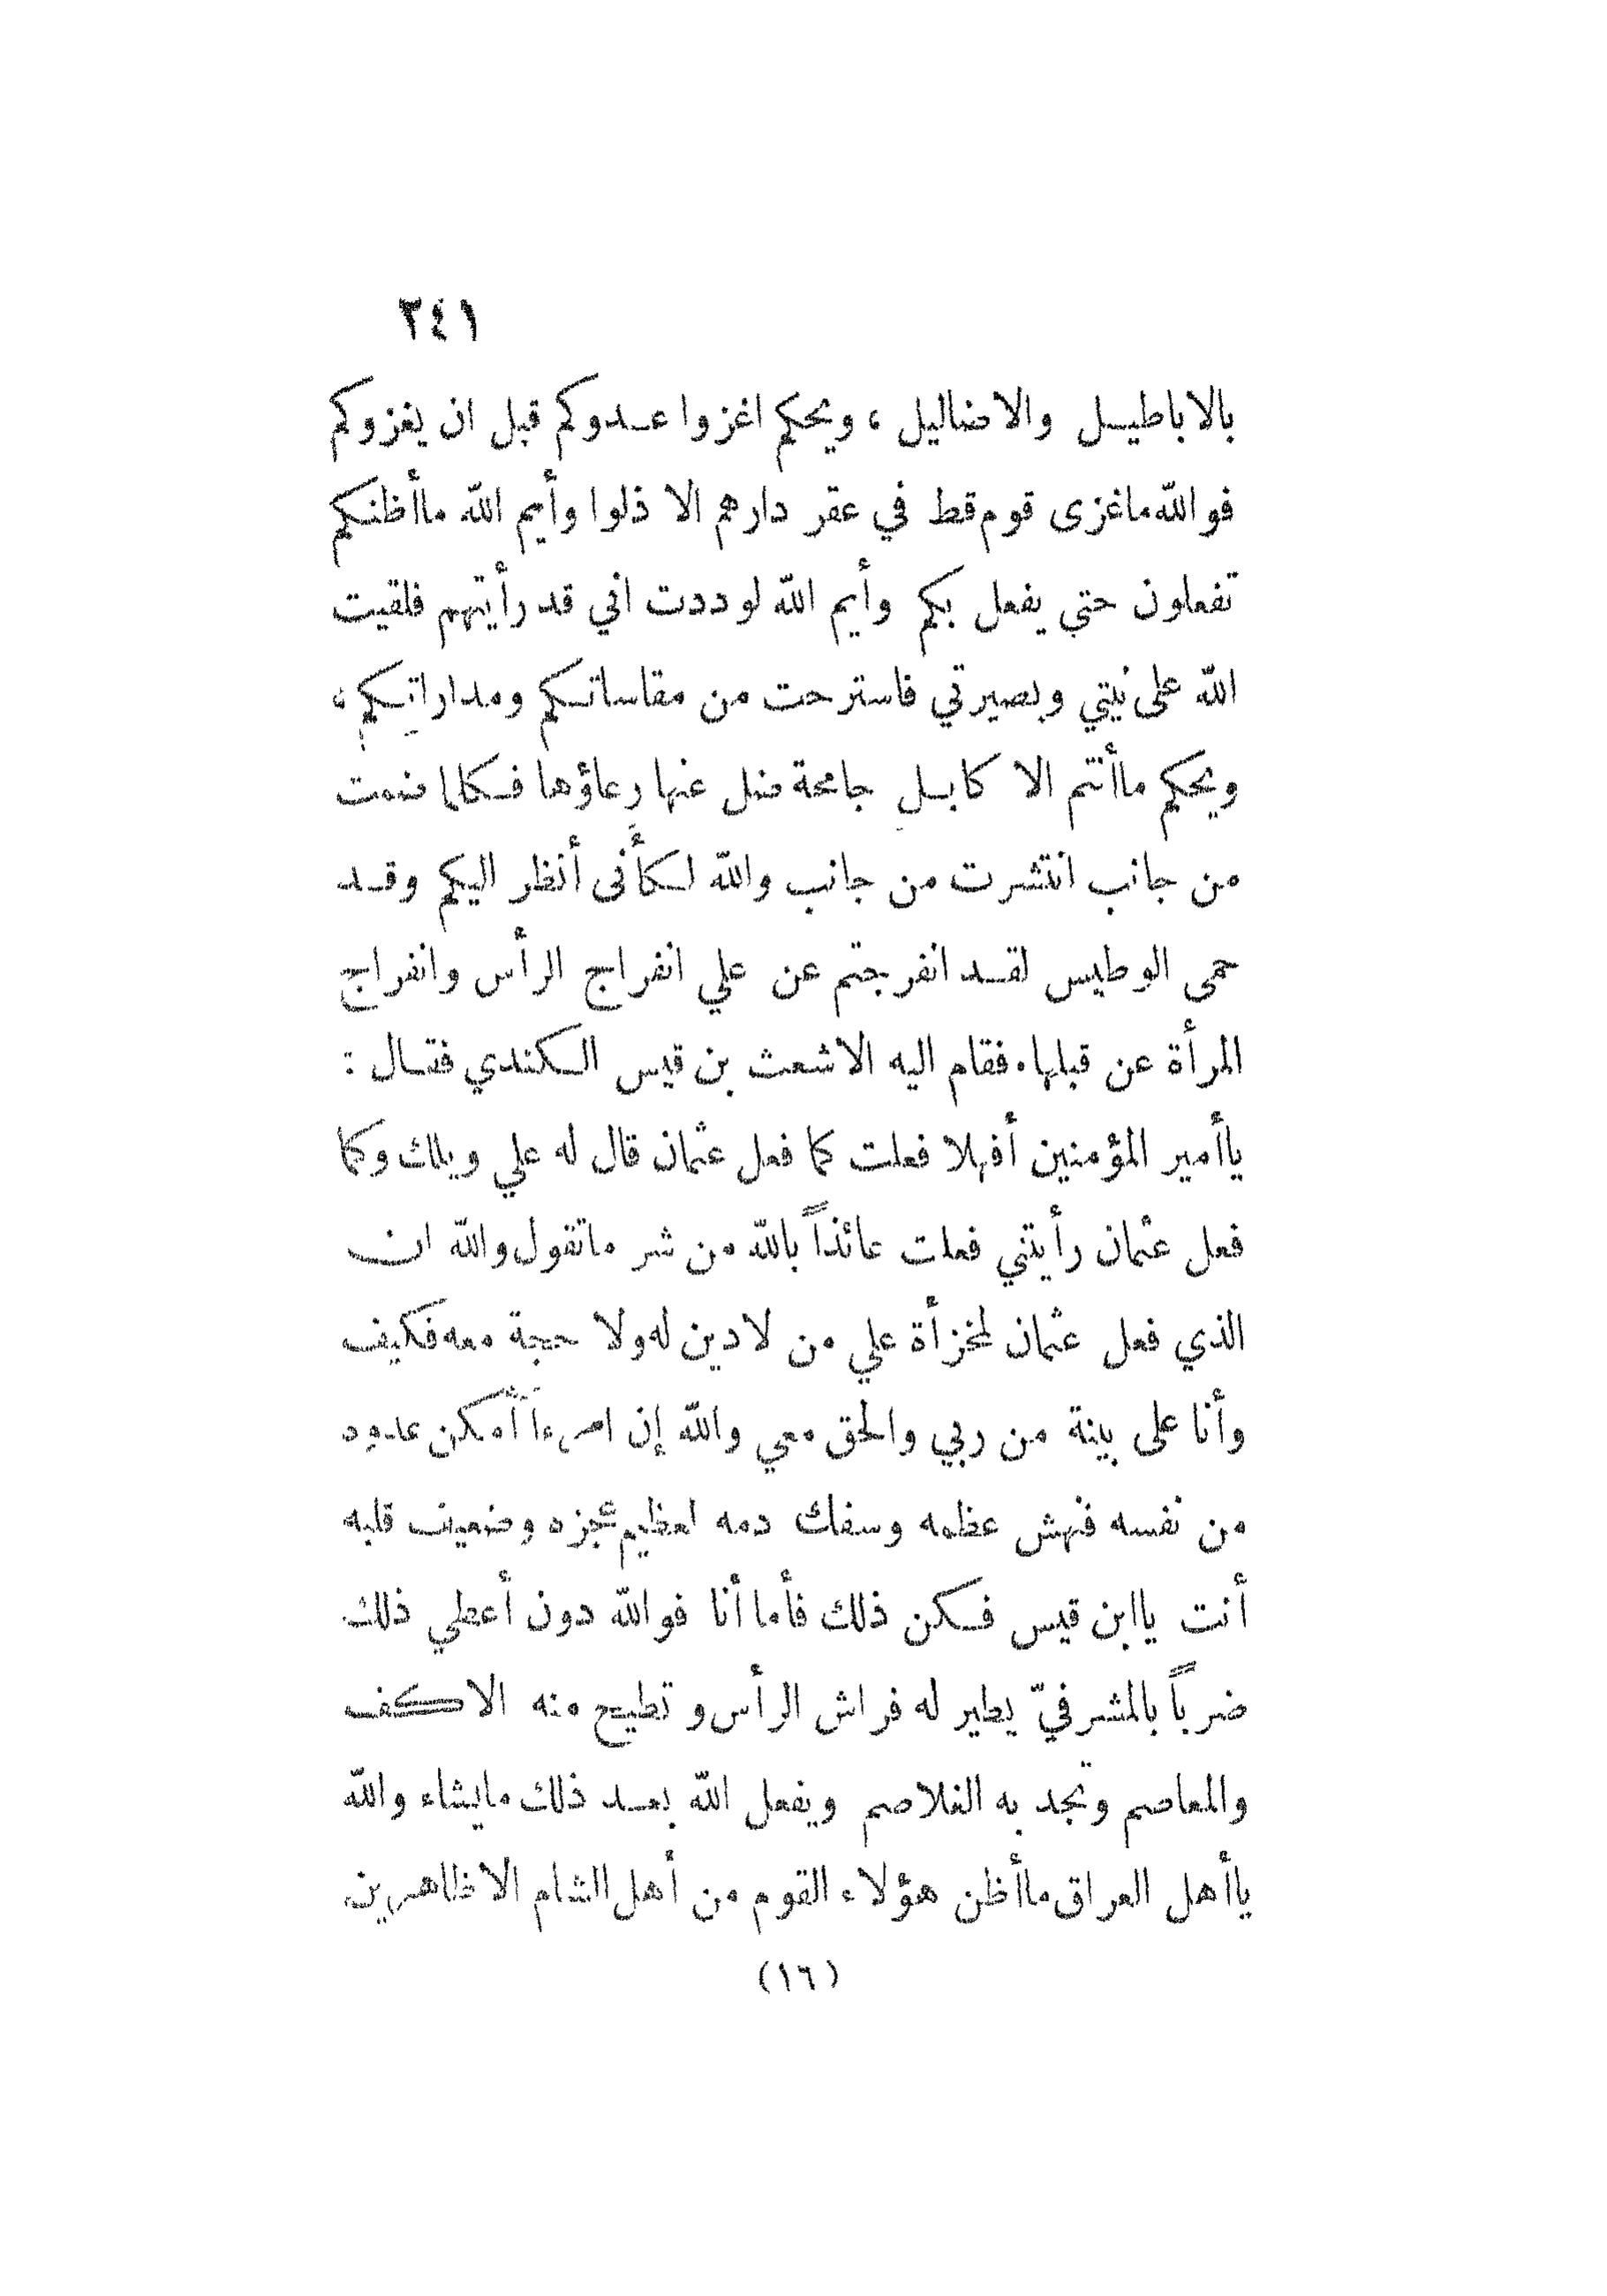 ٢٤١
بالاباطيل والاضاليل ، ويحكم اغزوا عدوكم قبل ان يغزوكم
فوالله ماغزى قوم قط في عقر دارهم الا ذلوا وأيم الله ماأظنكم
تفعلون حتى يفعل بكم وأيم الله لوددت اني قد رأيتهم فلقيت
الله على نيتي وبصيرتي فاسترحت من مقاساتكم ومداراتكم ،
ويحكم ماأنتم الا كابل جامحة ضل عنها رعاؤها فكلما ضمت
من جانب انتشرت من جانب والله لكأنى أنظر اليكم وقد
حمى الوطيس لقد انفرجتم عن علي انفراج الرأس وانفراج
المرأة عن قبلها . فقام اليه الاشعث بن قيس الكندي فقال :
ياأمير المؤمنين أفهلا فعلت كما فعل عثمان قال له علي ويلك وكما
فعل عثمان رأيتني فعلت عائذاً بالله من شر ماتقول والله ان
الذي فعل عثمان لمخزأة علي من لادين له ولا حجة معه فكيف
وأنا على بينة من ربي والحق معي والله إن امرءاً أمكن عدوه
من نفسه فنهش عظمه وسفك دمه لعظيم عجزه وضعيف قلبه
أنت ياابن قيس فكن ذلك فأما أنا فوالله دون أعطي ذلك
ضرباً بالمشرفيّ يطير له فراش الرأس و تطيح منه الاكف
والمعاصم وتجد به الغلاصم ويفعل الله بعد ذلك مايشاء والله
ياأهل العراق ماأظن هؤلاء القوم من أهل الشام الا ظاهرين
(١٦)